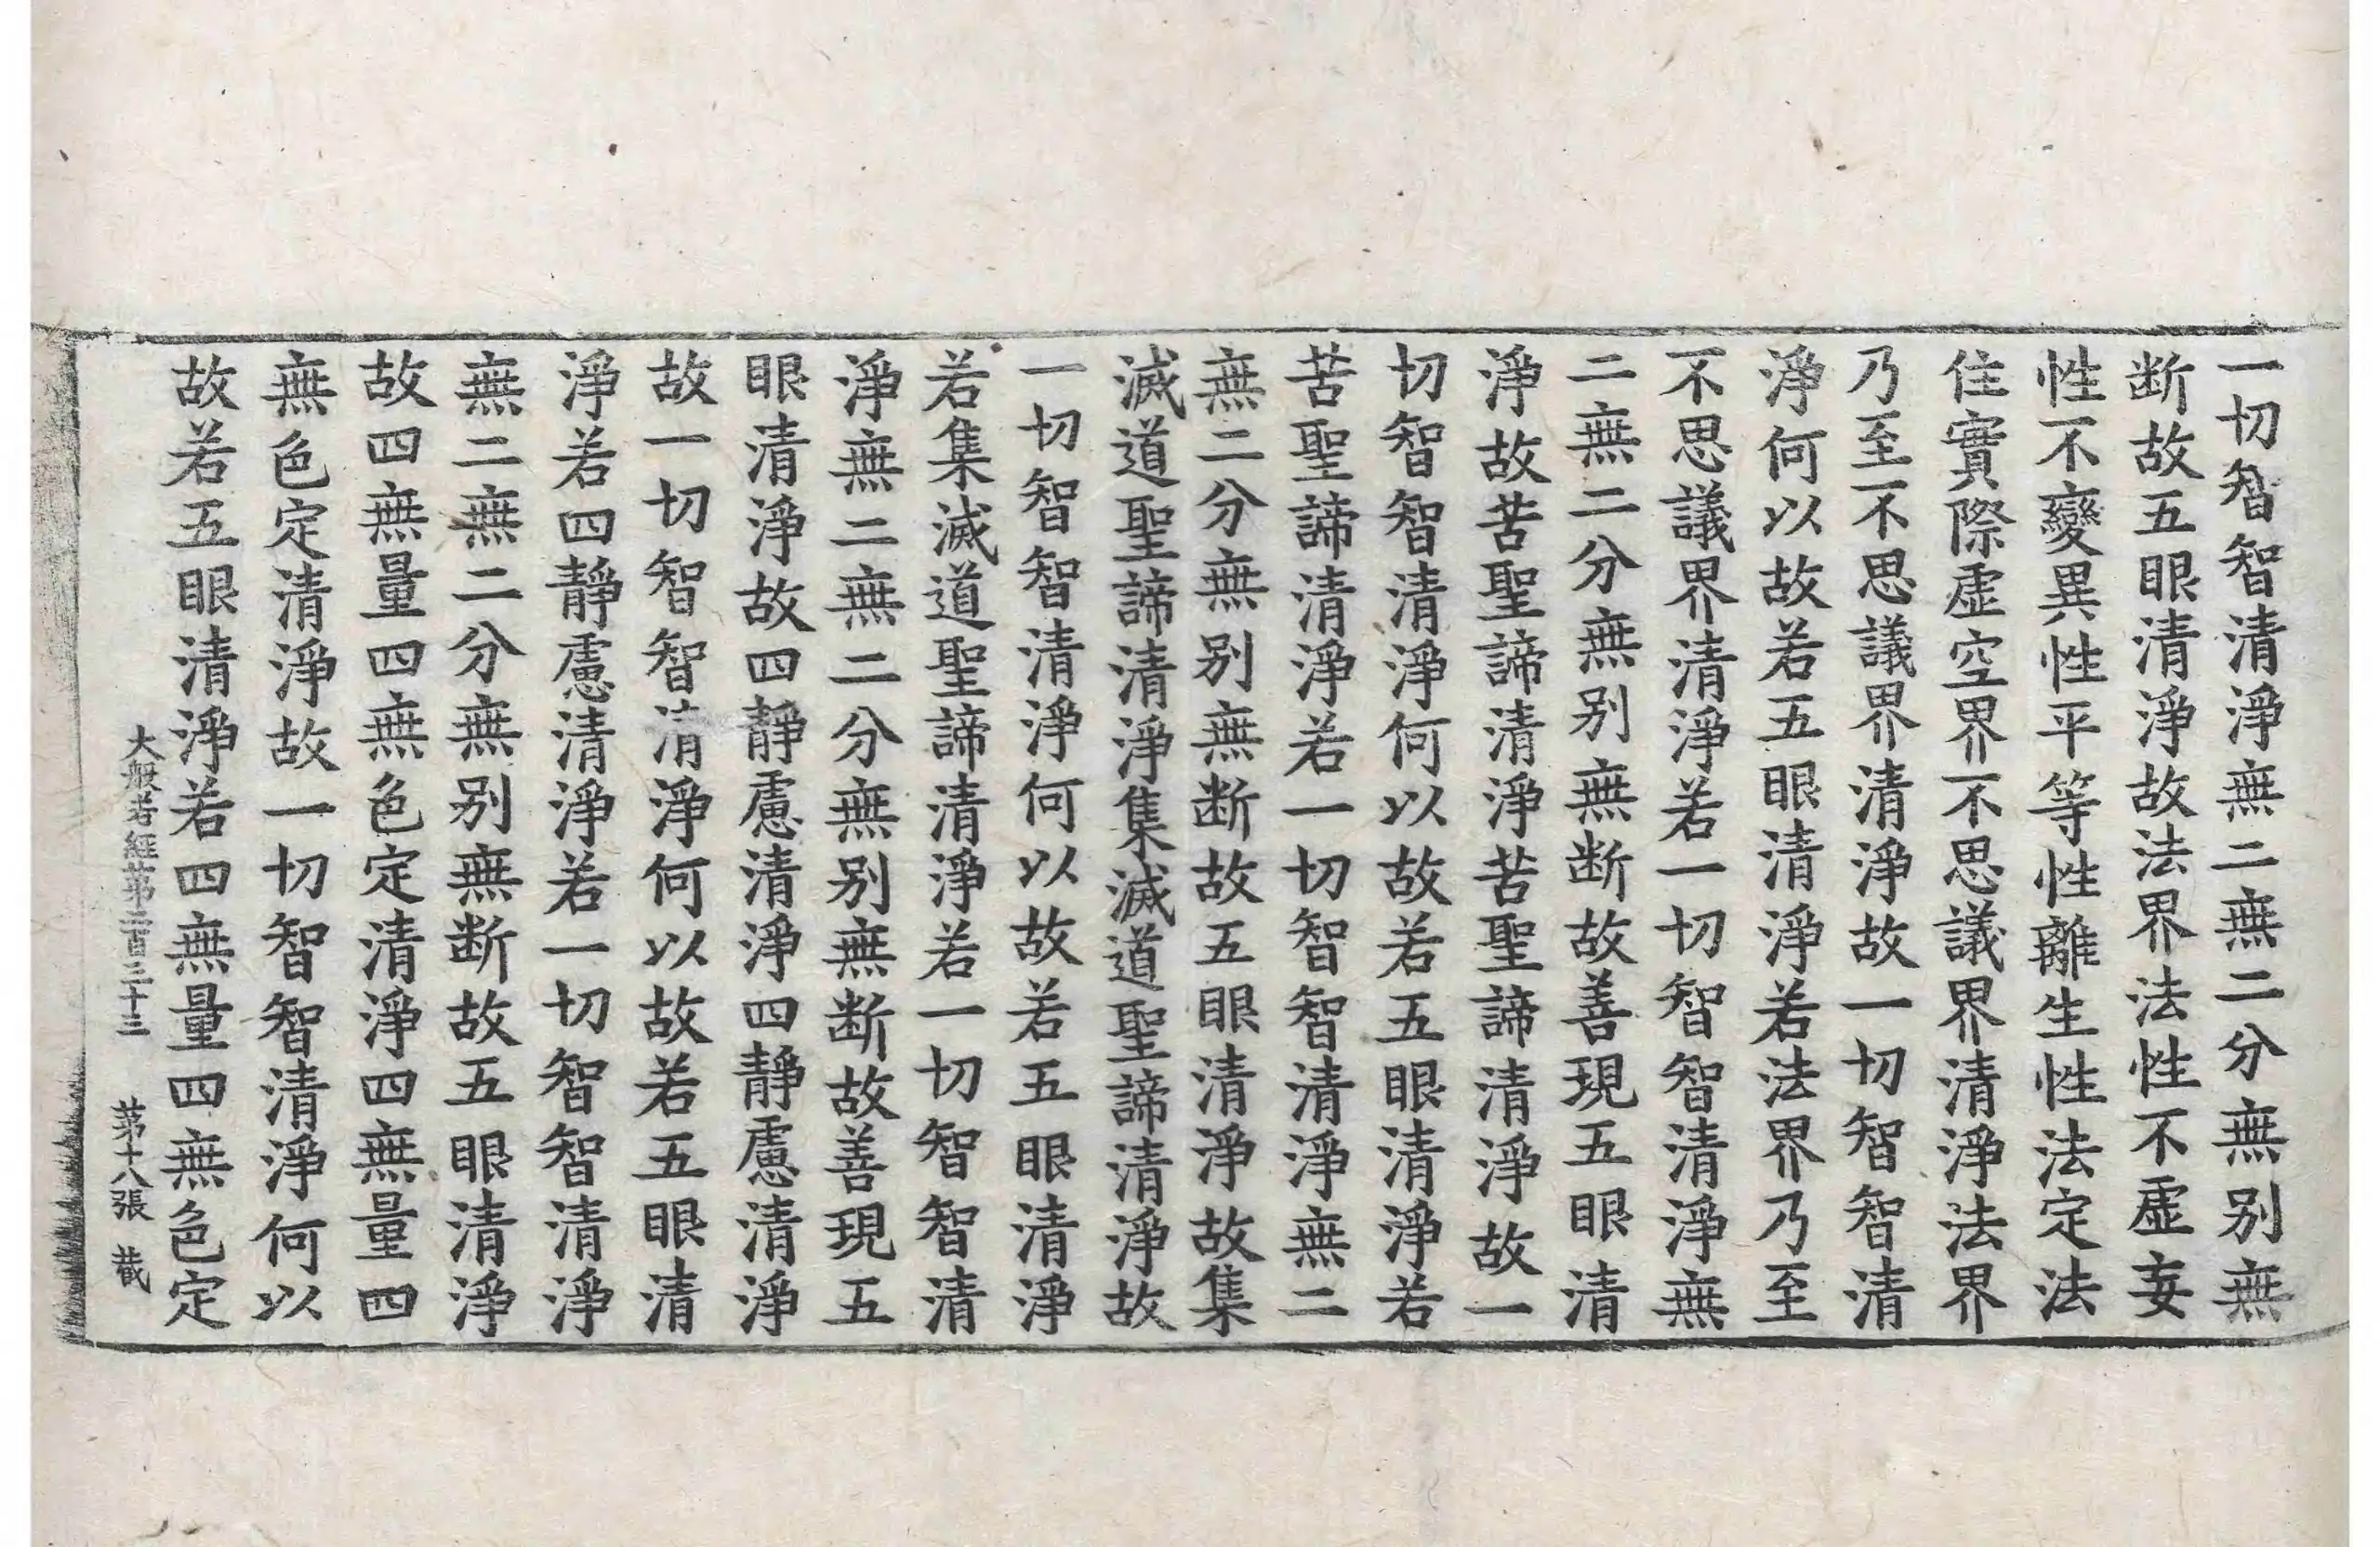 一切智智清淨無二無二分無別無
断故五眼清淨故法界法性不虛妄
性不變異性平等性離生性法定法
住實際虛空界不思議界清淨法界
乃至不思議界清淨故一切智智清
淨何以故若五眼清淨若法界乃至
不思議界清淨若一切智智清淨無
二無二分無別無断故善現五眼清
淨故苦聖諦清淨苦聖諦清淨故一
切智智清淨何以故若五眼清淨若
苦聖諦清淨若一切智智清淨無二
無二分無別無断故五眼清淨故集
滅道聖諦清淨集滅道聖諦清淨故
一切智智清淨何以故若五眼清淨
若集滅道聖諦清淨若一切智智清
淨無二無二分無別無断故善現五
眼清淨故四靜慮清淨四靜慮清淨
故一切智智清淨何以故若五眼清
淨若四靜慮清淨若一切智智清淨
無二無二分無別無断故五眼清淨
故四無量四無色定清淨四無量四
無色定清淨故一切智智清淨何以
故若五眼清淨若四無量四無色定
大般若經第二百三十三 第十八張 菆